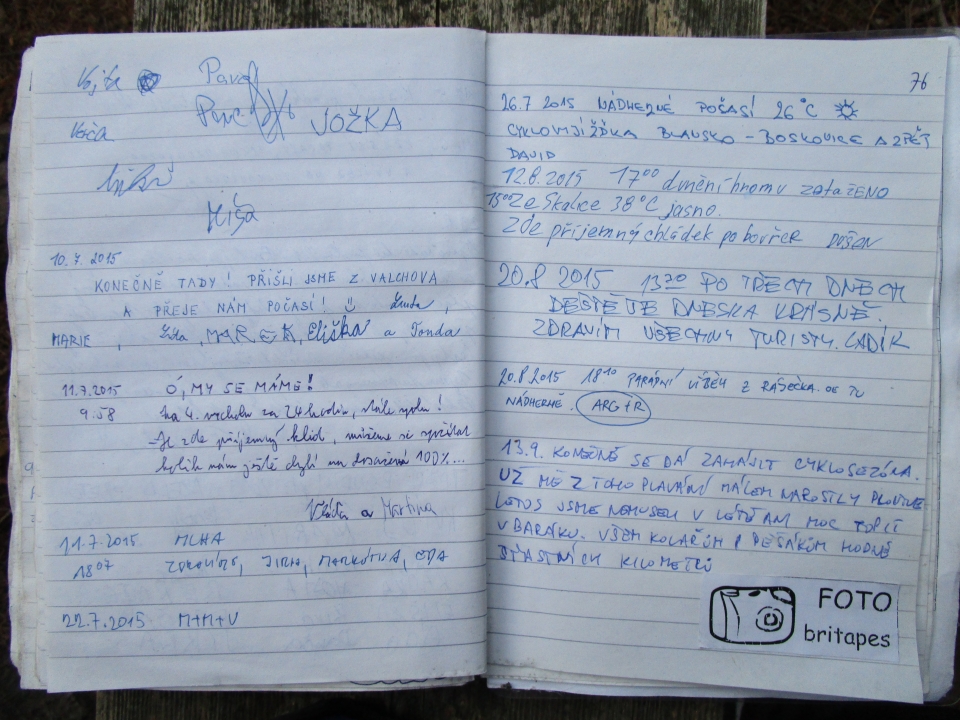 Vojta
Pavel
Pavel
JOŽKA
Káča
Míša
10.7.2015
KONEČNĚ TADY! PŘIŠLI JSME Z VALCHOVA
A PŘEJE NÁM POČASÍ!
MARIE, MAREK, Eliška a Tonda
11.7.2015 Ó, MY SE MÁME!
9:58 na 4. vrcholu za 24 hodin, stále spolu!
Je zde příjemný klid, můžeme si spočítat
kolik nám ještě chybí na dosažená 100%...
a Martina
11.7.2015 MLHA
18 07 JIRKA, MARKÉTKA,
22.7.2015 M+M+V
76
26.7 2015 NÁDHERNÉ POČASÍ 26°C
CYKLOVYJÍŽĎKA BLANSKO - BOSKOVICE A ZPĚT
DAVID
12.8.2015 17 00 dunění hromu zataženo
15 00 Ze Skalice 38°C jasno.
Zde příjemný chládek po bouřce DUŠAN
20.8 2015 13 20 PO TŘECH DNECH
DEŠTĚ JE DNESKA KRÁSNĚ.
ZDRAVÍM VŠECHNY TURISTY. LADÍK
20.8 2015 18 10 PARÁDNÍ VÝBĚH Z RÁJEČKA. JE TU
NÁDHERNĚ. ARG+R
13.9. KONEČNĚ SE DÁ ZAHÁJIT CYKLOSEZÓNA.
UŽ MĚ Z TOHO PLAVÁNÍ MÁLEM NAROSTLY PLOUTVE
LETOS JSME NEMUSELI V LÉTĚ ANI MOC TOPIT
V BARÁKU. VŠEM KOLAŘŮM I PĚŠÁKŮM HODNĚ
ŠŤASTNÝCH KILOMETRŮ
FOTO
britapes